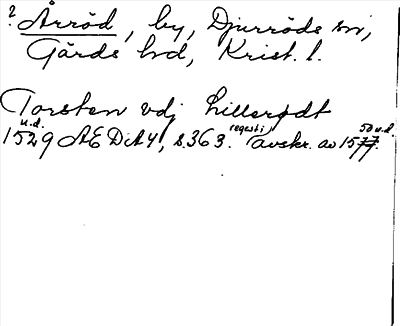 ? Årröd, by, Djurröds sn,
Gärds hrd, Krist. l.
Torsten vdj hillerødt
u.d. regest; 50 u.d.
1529 ÆDA 4, s. 363. avskr. av 1577.